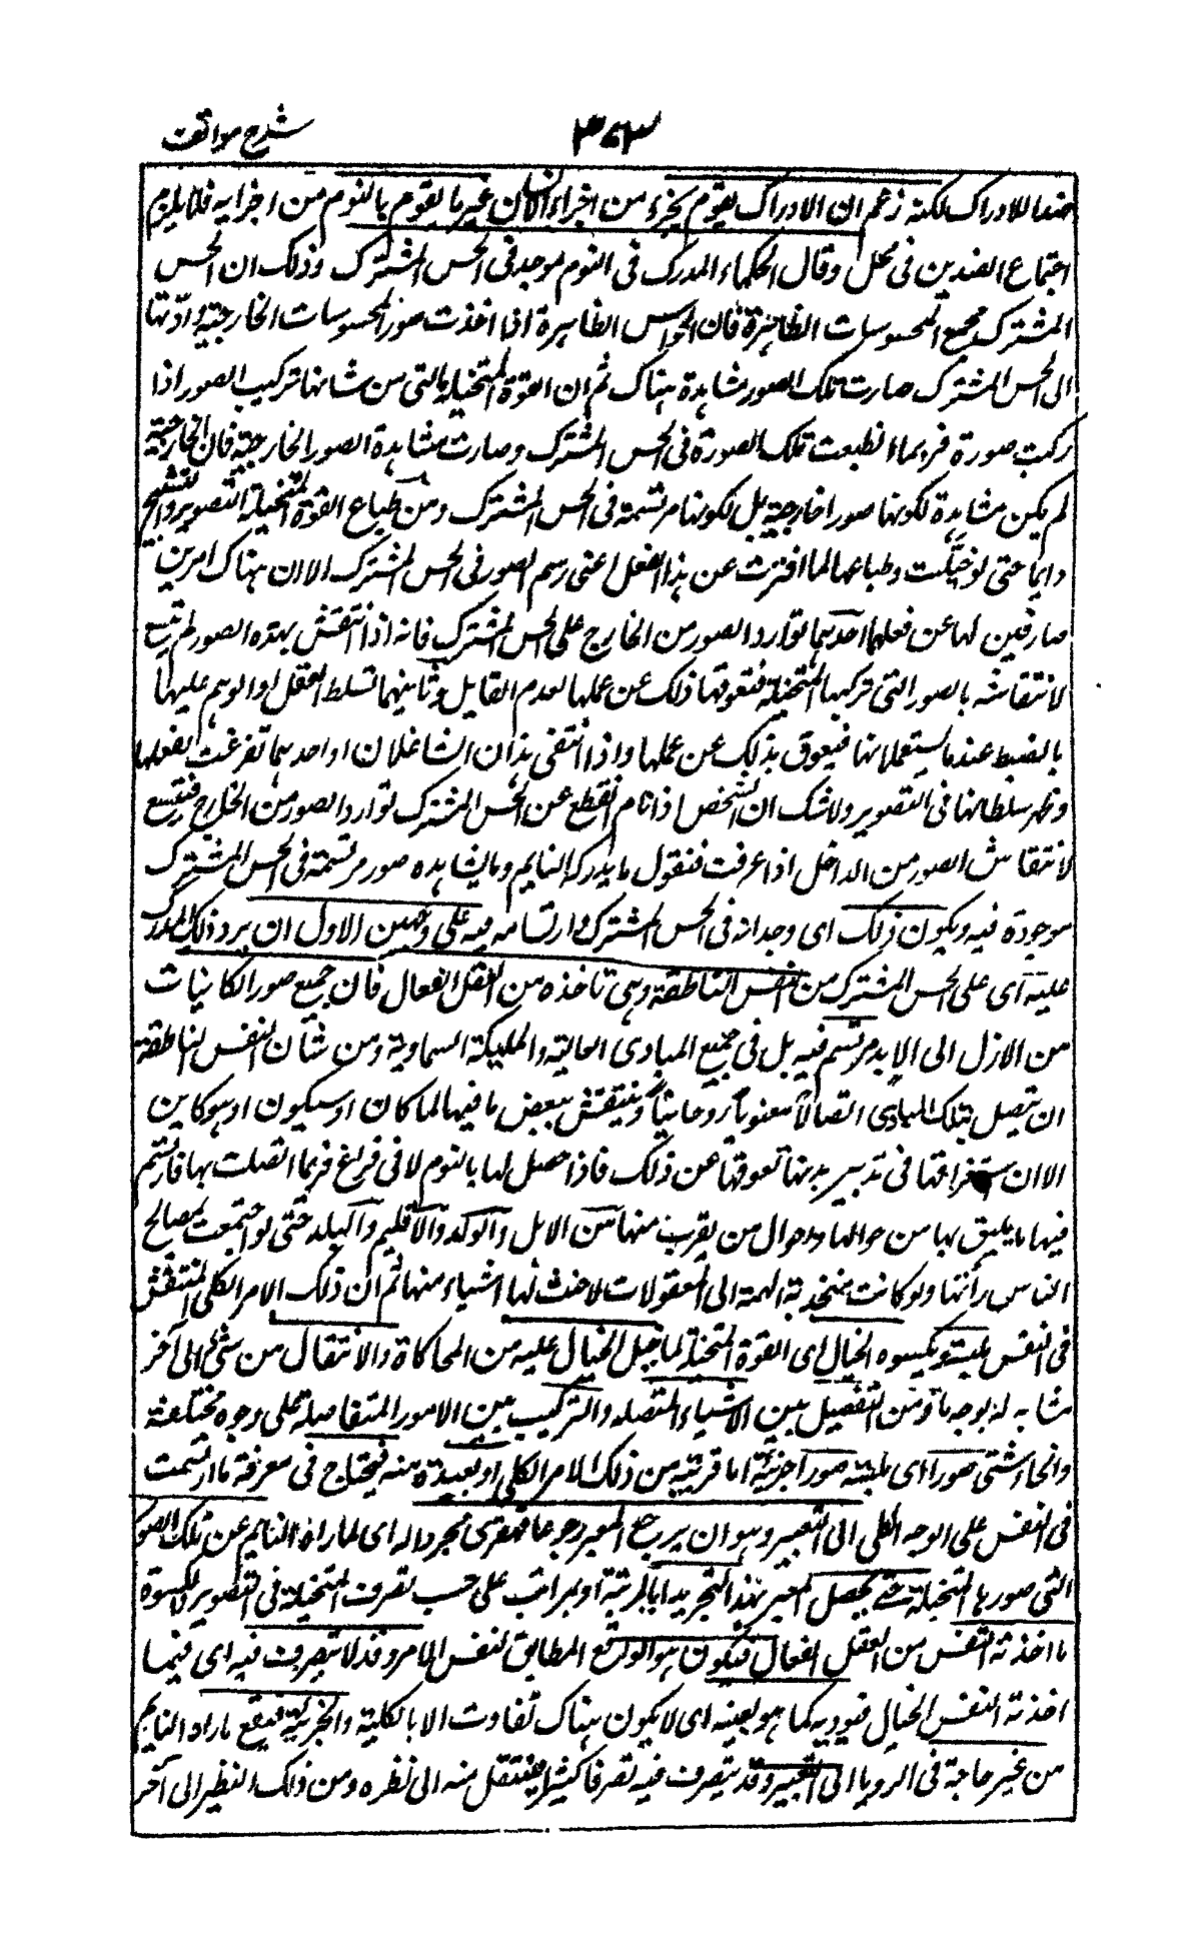 شرح مواقف
٣٧٣
ضدا للادراك لكنه زعم ان الادراك يقوم بجزء من اجزاء الانسان غير ما يقوم بالنوم من اجزايه فلا يلزم
اجتماع الضدين فى محل وقال الحكماء المدرك فى النوم يوجد فى الحس المشترك وذلك ان الحس
المشترك مجمع المحسوسات الظاهرة فان الحواس الظاهرة اذا اخذت صور المحسوسات الخارجية وادتها
الى الحس المشترك صارت تلك الصور مشاهدة هناك ثم ان القوة المتخيلة التى من شانها تركيب الصور اذا
ركبت صورة فربما انطبعت تلك الصورة فى الحس المشترك وصارت مشاهدة الصور الخارجية فان الخارجية
لم يكن مشاهدة لكونها صورا خارجية بل لكونها مرتسمة فى الحس المشترك ومن طباع القوة المتخيلة التصوير والتشبيح
دايما حتى لو خليت وطباعها لما افترت عن هذا الفعل اعنى رسم الصور فى الحس المشترك الا ان هناك امرين
صارفين لها عن فعلها احدهما توارد الصور من الخارج على الحس المشترك فانه اذا انتقش بهذه الصور لم يتسع
لانتقاشه بالصور التى تركبها المتخيلة فتعوقها ذلك عن عملها لعدم القابل وثانيهما تسلط العقل او الوهم عليها
بالضبط عندما يستعملانها فيعوق بذلك عن عملها واذا انتفى هذان الشاغلان او احدهما تفرغت لفعلها
وظهر سلطانها فى التصوير ولا شك ان الشخص اذا نام انقطع عن الحس المشترك توارد الصور من الخارج فيتسع
لانتقاش الصور من الداخل اذا عرفت فنقول ما يدركه النايم ويشاهده صور مرتسمة فى الحس المشترك
موجودة فيه ويكون ذلك اى وجدانه فى الحس المشترك وارتسامه فيه على وجهين الاول ان يرد ذلك المدرك
عليه اى على الحس المشترك من النفس الناطقة وهى تاخذه من العقل الفعال فان جميع صور الكاينات
من الازل الى الابد مرتسم فيه بل فى جميع المبادى العالية والمليكة السماوية ومن شان النفس الناطقة
ان تتصل بتلك المبادى اتصالا معنويا روحانيا وينتقش ببعض ما فيها لما كان او سيكون او هو كاين
الا ان استغراقها فى تدبير بدنها تعوقها عن ذلك فاذا حصل لها بالنوم ادنى فراغ فربما اتصلت بها فارتسم
فيها ما يليق بها من احوالها واحوال من يقرب منها من الاهل والولد والاقليم والبلد حتى لو اهتمت بمصالح
الناس رأتها ولو كانت منجذبة الهمة الى المعقولات لاحت لها اشياء منها ثم ان ذلك الامر الكلى المنتقش
فى النفس يلبسه ويكسوه الخيال اى القوة المتخيلة لما جبل الخيال عليه من المحاكاة والانتقال من شئ الى آخر
مشابه له بوجه ما ومن التفصيل بين الاشياء المتصله والتركيب بين الامور المتفاصلة على وجوه مختلفة
وانحاء شتى صورا اى يلبسه صورا جزئية اما قريبة من ذلك الامر الكلى او بعيدة منه فيحتاج فى معرفة ما ارتسمت
فى النفس على الوجه الكلى الى التعبير وهو ان يرجع المعبر رجوعا قهقرى مجردا له اى لما راه النايم عن تلك الصور
التى صورها المتخيلة حتى يحصل المعبر بهذا التجريد اما بمرتبة او بمراتب على حسب تصرف المتخيلة فى التصوير والكسوة
ما اخذته النفس من العقل الفعال فيكون هو الواقع المطابق لنفس الامر وقد لا تتصرف فيه اى فيما
اخذته النفس الخيال فيوديه كما هو بعينه اى لا يكون هناك تفاوت الا بالكلية والجزئية فيقع ما راه النايم
من غير حاجة فى الرويا الى التعبير وقد يتصرف فيه تصرفا كثيرا فينتقل منه الى نظره ومن ذلك النظير الى آخر